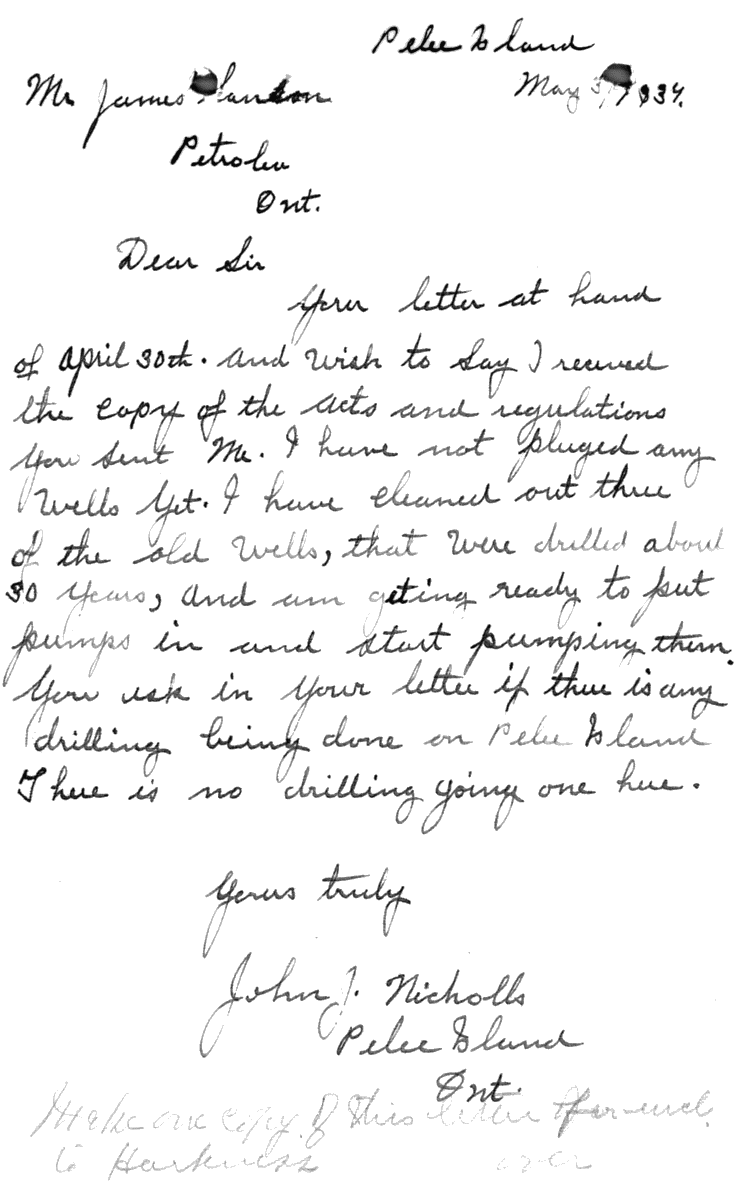 Pelee Island
May 3, 1934.
Mr James
Petrolia
Ont.
Dear Sir
Your letter at hand
of April 30th. And wish to say I received
the copy of the acts and regulations
you sent Me. I have not pluged any
Wells Yet. I have cleaned out three
of the old Wells, that Were drilled about
30 Years, and am geting ready to put
pumps in and start pumping them.
You ask in Your letter if there is any
drilling being done on Pelee Island
There is no drilling going one here.
Yours truly
John J. Nicholls
Pelee Island
Ont.
Make one copy of this letter for encl.
to Harkness over